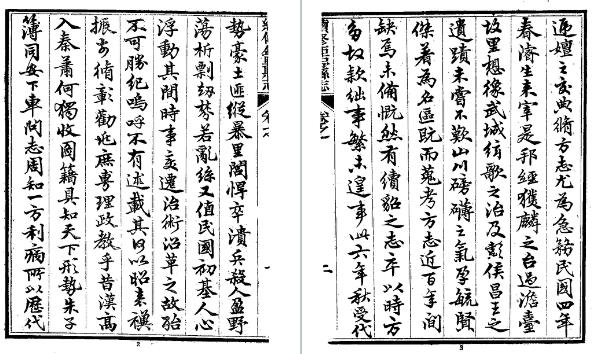 遞嬗之交典脩方志尤為急務民國四年
春濬生來宰是邦經獲麟之台過澹臺
故里想像武城絃歌之治及彭侯昌王之
遺蹟未嘗不歎山川磅礴之氣孕毓賢
傑著為名區既而蒐考方志近百年間
缺焉未備慨然有續貂之志卒以時方
多故欵絀事繁未遑事此六年秋受代
勢豪土匪縱暴里閭悍卒潰兵殺人盈野
蕩析剽劫棼若亂絲又值民國初基人心
浮動其間時事變遷治術沿革之故殆
不可勝紀嗚呼不有述載其何以昭來禩
振彰勸庶理政教乎昔漢高
入秦蕭何獨收圖籍具知天下形勢朱子
簿同安下車閱志周知一方利病所以歷代
3
2